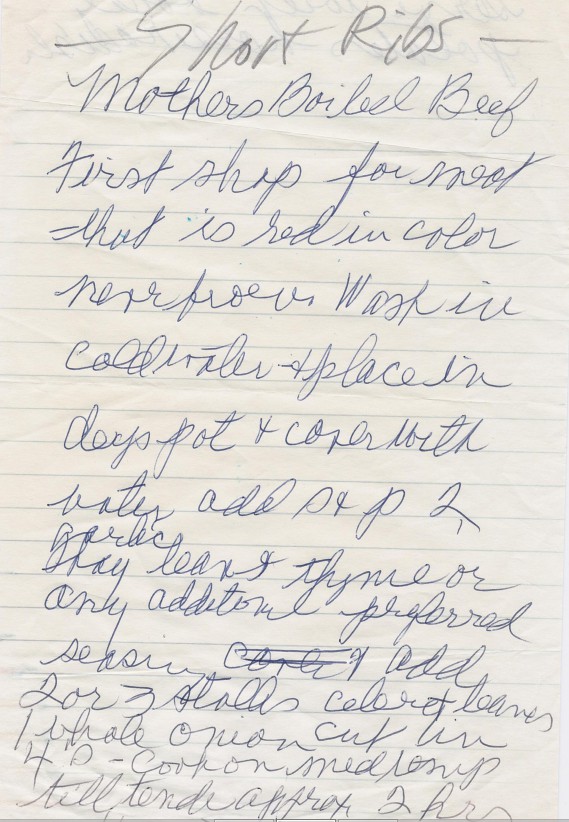 — Short Ribs —
Mothers Boiled Beef
First shop for meat
that is red in color
never frozen. Wash in
cold water + place in
deep pot + cover with
water add s + p 2
garlic
Bay leave + thyme or
any additional preferred
seasin & add
2 or 3 stalks celery + leaves
1 whole onion cut in
4's - Cook on med temp
till tender approx 2 hrs